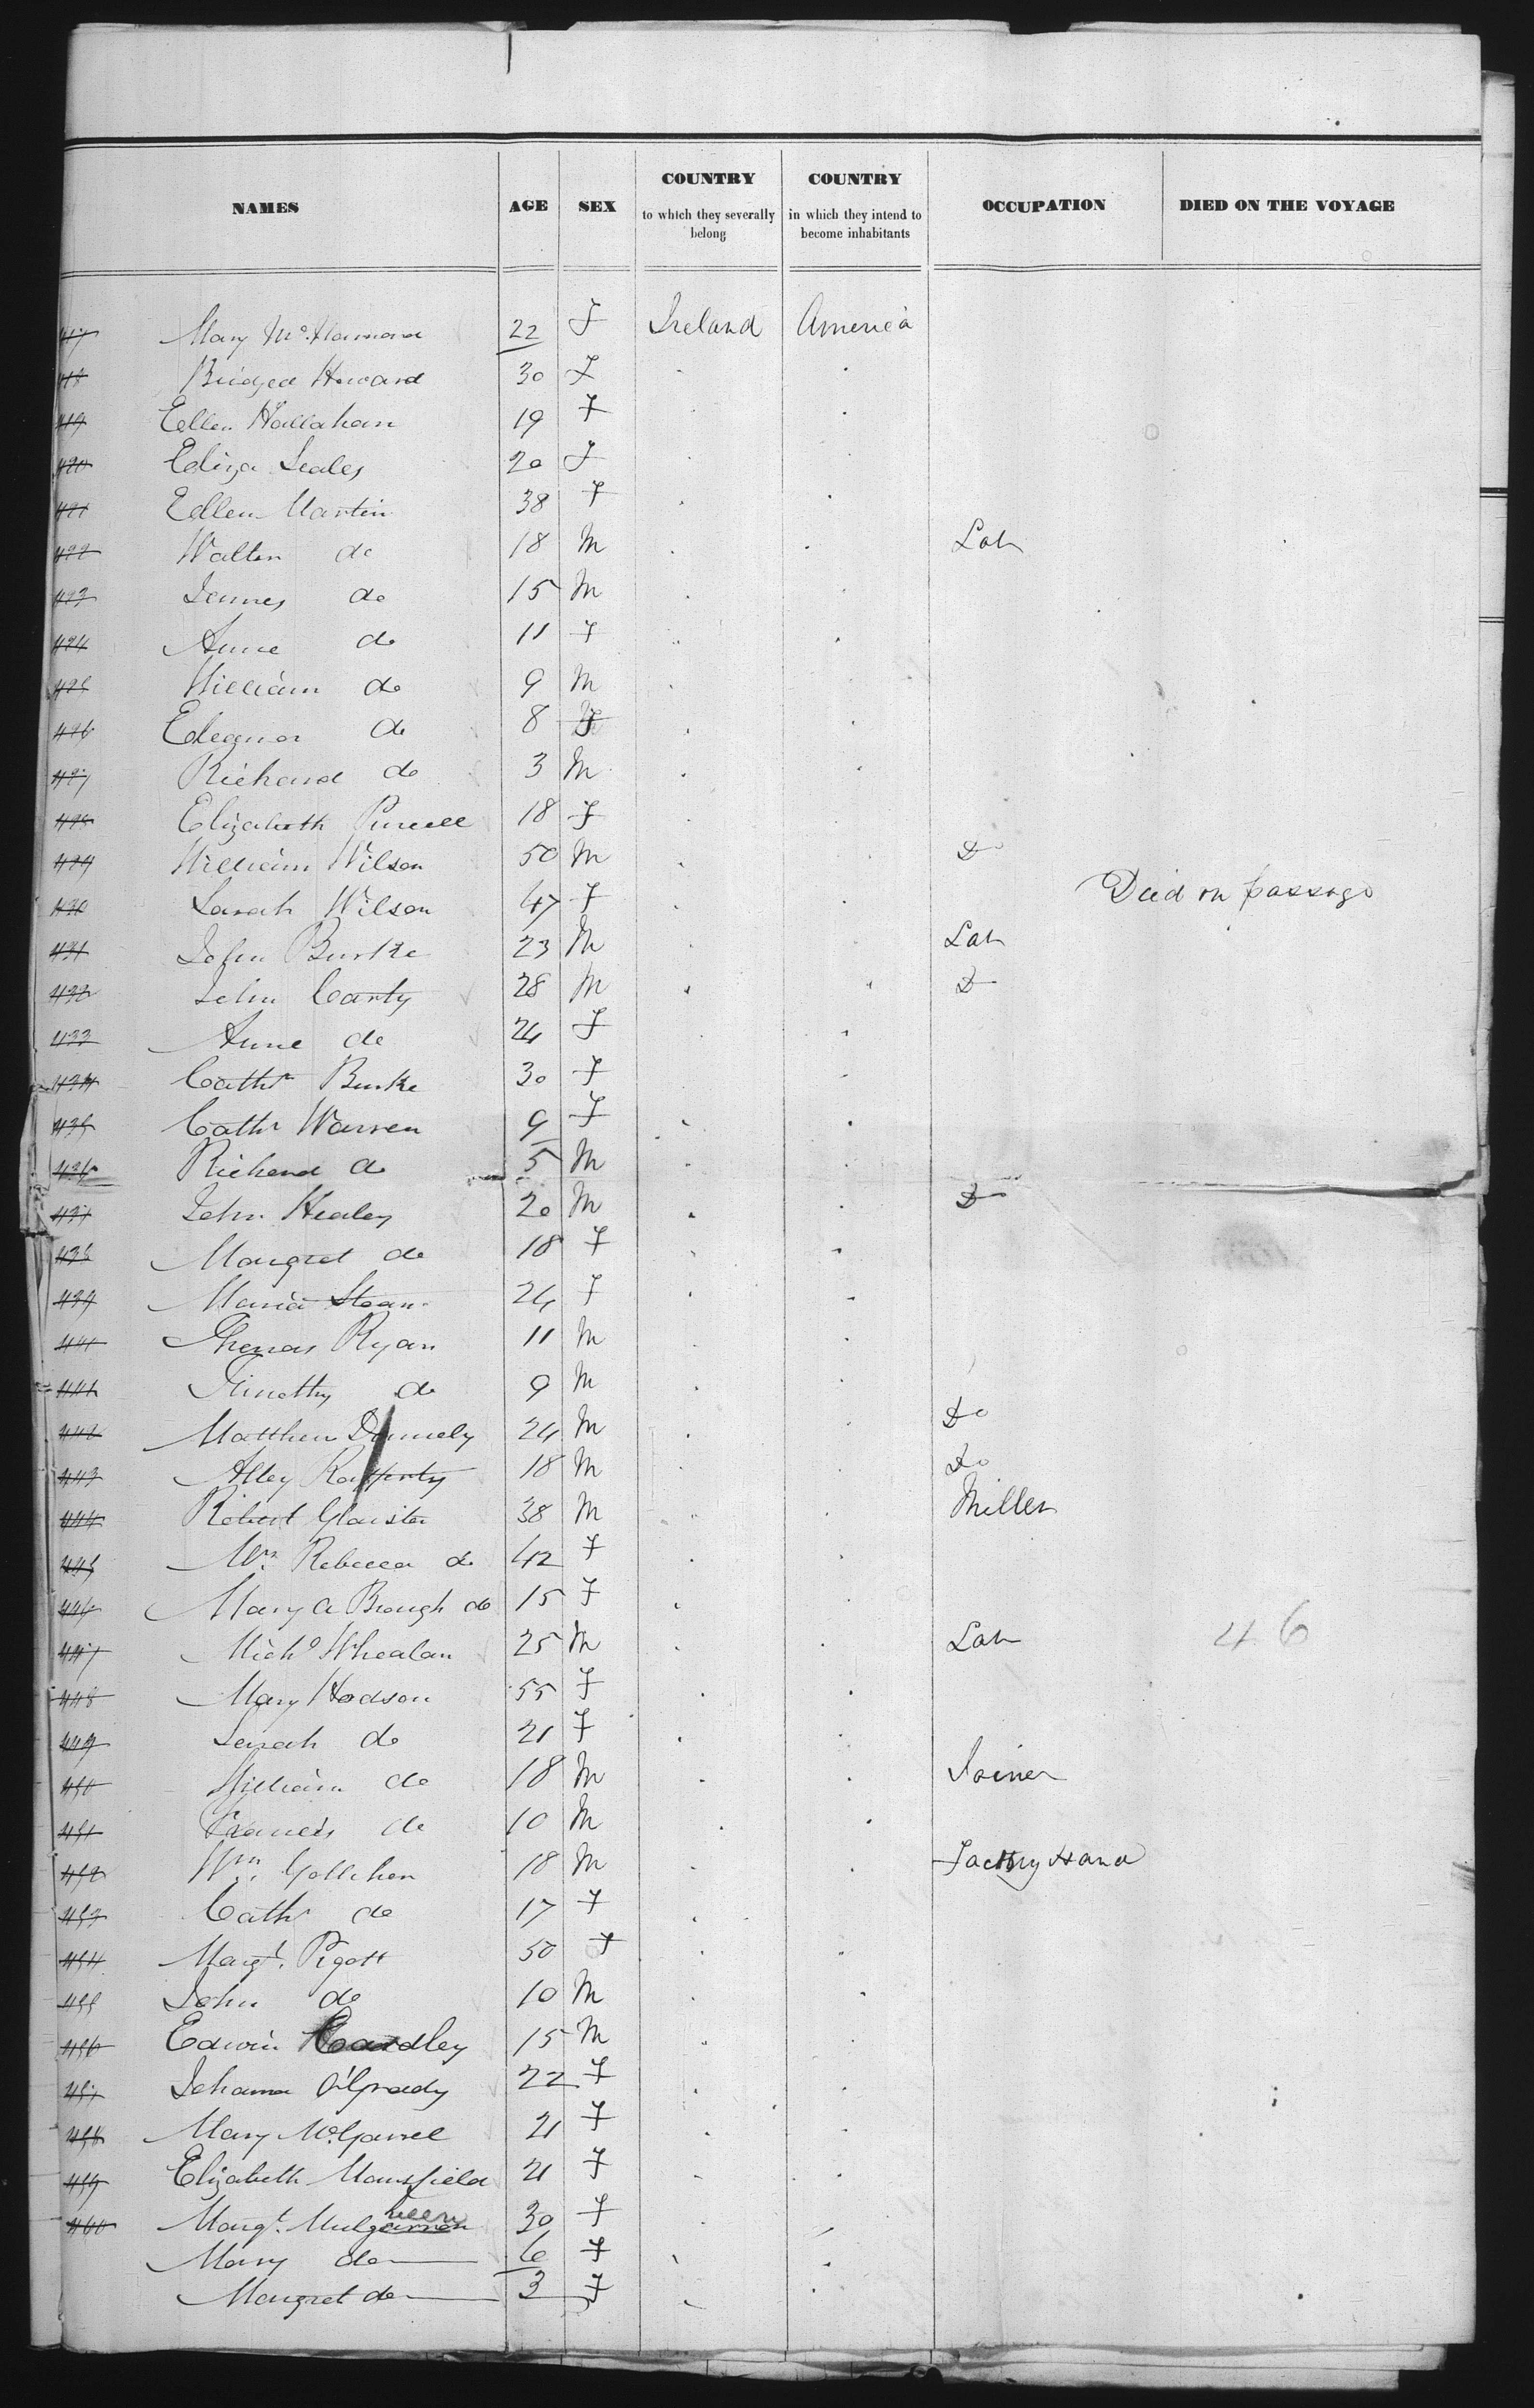 NAMES AGE SEX COUNTRY to which they severally belong COUNTRY in which they intend to become inhabitants OCCUPATION DIED ON THE VOYAGE
417 Mary 22 F Ireland America
418 Bridged Howard 30 F
419 Ellen Hallahan 19 F
420 Eliza Scales 20 F
421 Ellen Martin 38 F
422 Walter do 18 M Lab
423 James do 15 M
424 Anne do 11 F
425 William do 9 M
426 Eleanor do 8 F
427 Richard do 3 M
428 Elizabeth Purcell 18 F
429 William Wilson 50 M Do
430 Sarah Wilson 47 F Died on passage
431 John Burke 23 M Lab
432 John Carty 28 M Do
433 Anne do 24 F
434 Cathr Burke 30 F
435 Cathr Warren 9 F
436 Richard do 5 M
437 John Healey 20 M Do
438 Margret do 18 F
439 Maria 24 F
441 Thomas Ryan 11 M
441 Timothy do 9 M
442 Matthew Donnely 24 M Do
443 Alley Rafferty 18 M Do
444 Robert Glaister 38 M Miller
445 Mrs Rebecca do 42 F
446 Mary A Brough do 15 F
447 Michl Whealan 25 M Lab 46
448 Mary Hodson 55 F
449 Sarah do 21 F
450 William do 18 M Joiner
451 Francis do 10 M
452 Wm Gollihen 18 M Factory Hand
453 Cathr do 17 F
454 Margt. Pigott 50 F
455 John do 10 M
456 Edwin 15 M
457 Johanna O'Grady 22 F
458 Mary McGarrel 21 F
459 Elizabeth Mansfield 21 F
460 Margt. 30 F
Mary do 6 F
Margret do 3 F